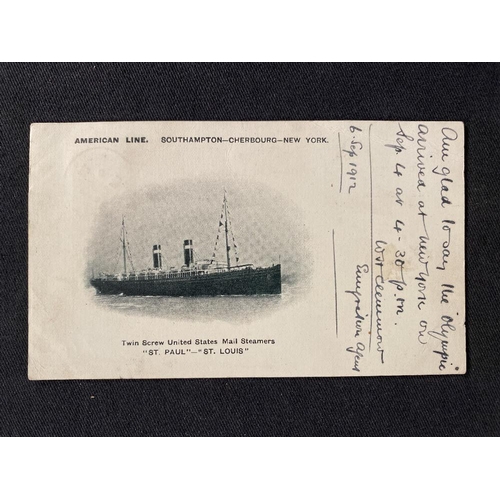 AMERICAN LINE. SOUTHAMPTON—CHERBOURG—NEW YORK.
Twin Screw United States Mail Steamers
"ST. PAUL"—"ST. LOUIS"
Am glad to say the Olympic
arrived at New York on
Sep 4 at 4-30 p.m.
Emigration Agent
6. Sep 1912